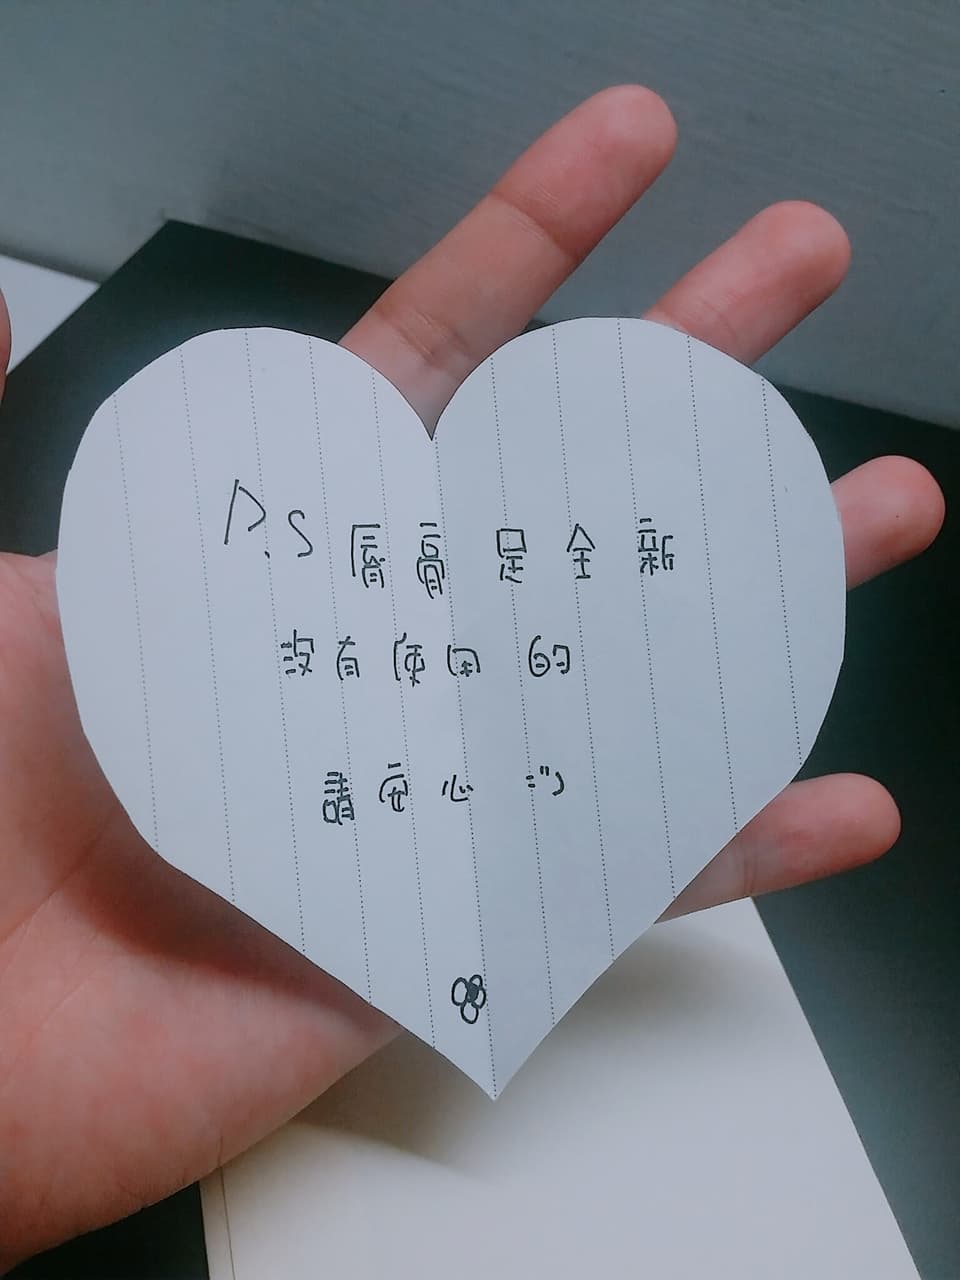 P.S 唇膏是全新
沒有使用的
請安心 :")